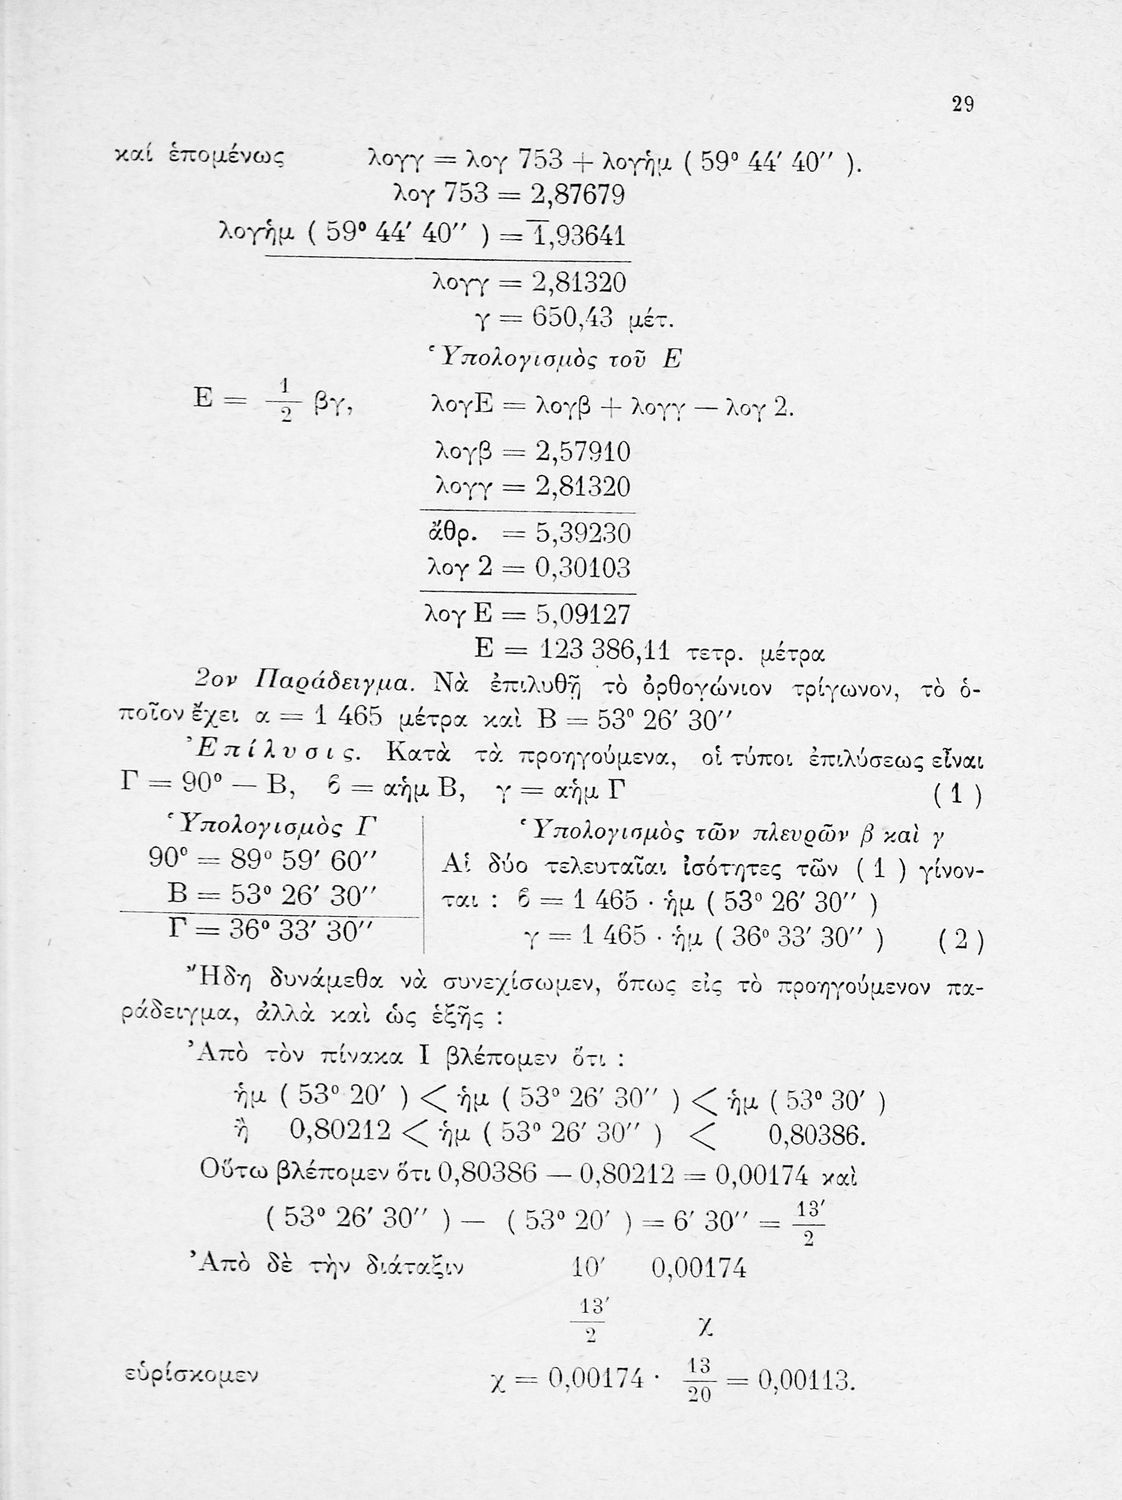 29
καί ἑπομένως λογγ = λογ 753 + λογἡμ ( 59° 44′ 40″ ).
λογ 753 = 2,87679
λογἡμ ( 59° 44′ 40″ ) = 1̅,93641
λογγ = 2,81320
γ = 650,43 μέτ.
Ὑπολογισμὸς τοῦ Ε
Ε = 1/2 βγ, λογΕ = λογβ + λογγ — λογ 2.
λογβ = 2,57910
λογγ = 2,81320
ἄθρ. = 5,39230
λογ 2 = 0,30103
λογ Ε = 5,09127
Ε = 123 386,11 τετρ. μέτρα
2ον Παράδειγμα. Νὰ ἐπιλυθῇ τὸ ὀρθογώνιον τρίγωνον, τὸ ὁ-
ποῖον ἔχει α = 1 465 μέτρα καὶ Β = 53° 26′ 30″
Ἐπίλυσις. Κατὰ τὰ προηγούμενα, οἱ τύποι ἐπιλύσεως εἶναι
Γ = 90° — Β, ϐ = αἡμ Β, γ = αἡμ Γ ( 1 )
Ὑπολογισμὸς Γ
90° = 89° 59′ 60″
Β = 53° 26′ 30″
Γ = 36° 33′ 30″
Ὑπολογισμὸς τῶν πλευρῶν β καὶ γ
Αἱ δύο τελευταῖαι ἰσότητες τῶν ( 1 ) γίνον-
ται : ϐ = 1 465 · ἡμ ( 53° 26′ 30″ )
γ = 1 465 · ἡμ ( 36° 33′ 30″ ) ( 2 )
Ἤδη δυνάμεθα νὰ συνεχίσωμεν, ὅπως εἰς τὸ προηγούμενον πα-
ράδειγμα, ἀλλὰ καὶ ὡς ἑξῆς :
Ἀπὸ τὸν πίνακα Ι βλέπομεν ὅτι :
ἡμ ( 53° 20′ ) < ἡμ ( 53° 26′ 30″ ) < ἡμ ( 53° 30′ )
ἢ 0,80212 < ἡμ ( 53° 26′ 30″ ) < 0,80386.
Οὕτω βλέπομεν ὅτι 0,80386 — 0,80212 = 0,00174 καὶ
( 53° 26′ 30″ ) — ( 53° 20′ ) = 6′ 30″ = 13′/2
Ἀπὸ δὲ τὴν διάταξιν 10′ 0,00174
13′/2 χ
εὑρίσκομεν χ = 0,00174 · 13/20 = 0,00113.